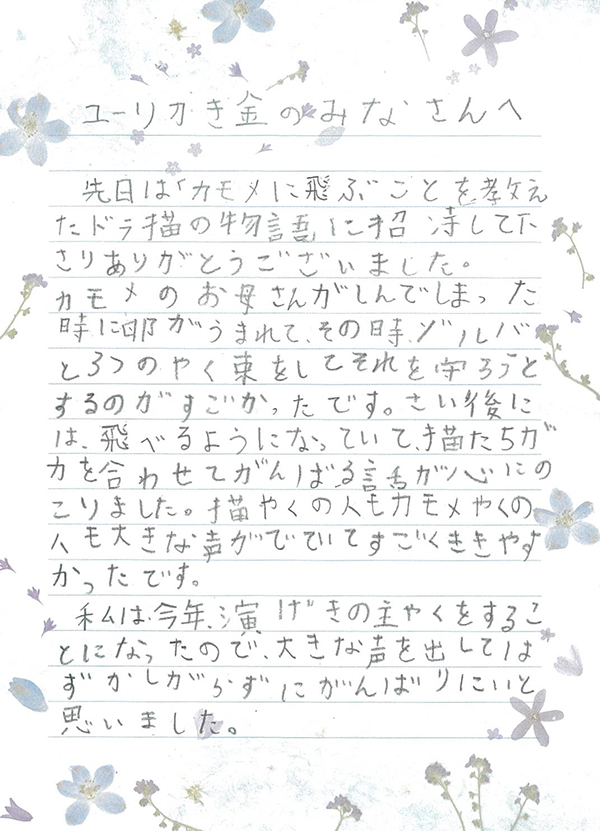 ユーリカき金のみなさんへ
先日は「カモメに飛ぶことを教え
たドラ描の物語」に招待して下
さりありがとうございました。
カモメのお母さんがしんでしまった
時に卵がうまれて、その時、ゾルバ
と3つのやく束をしてそれを守ろうと
するのがすごかったです。さい後に
は、飛べるようになっていて、描たちが
力を合わせてがんばる話が心にの
こりました。描やくの人もカモメやくの
人も大きな声がでていてすごくききやす
かったです。
私は今年、演げきの主やくをするこ
とになったので、大きな声を出しては
ずかしがらずにがんばりたいと
思いました。